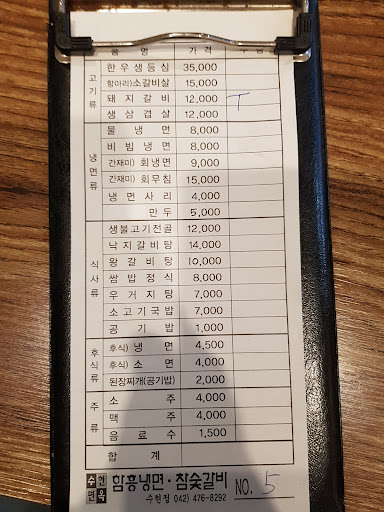 품 명 가 격 수 량
고기류
한우생등심 35,000
항아리)소갈비살 15,000
돼지갈비 12,000 T
생삼겹살 12,000
냉면류
물냉면 8,000
비빔냉면 8,000
간재미)회냉면 9,000
간재미)회무침 15,000
냉면사리 4,000
만두 5,000
식사류
생불고기전골 12,000
낙지갈비탕 14,000
왕갈비탕 10,000
쌈밥정식 8,000
우거지탕 7,000
소고기국밥 7,000
공기밥 1,000
후식류
후식)냉면 4,500
후식)소면 4,000
된장찌개(공기밥) 2,000
주류
소주 4,000
맥주 4,000
음료수 1,500
합계
함흥냉면·참숯갈비 NO. 5
수현점 042) 476-8292